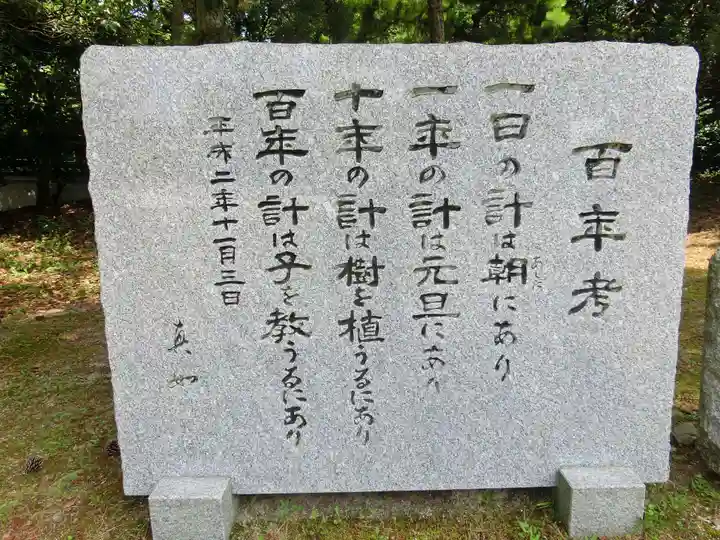 百年考
一日の計は朝にあり
あした
一年の計は元旦にあり
十年の計は樹を植うるにあり
百年の計は子を教うるにあり
平成二年十一月三日
真如